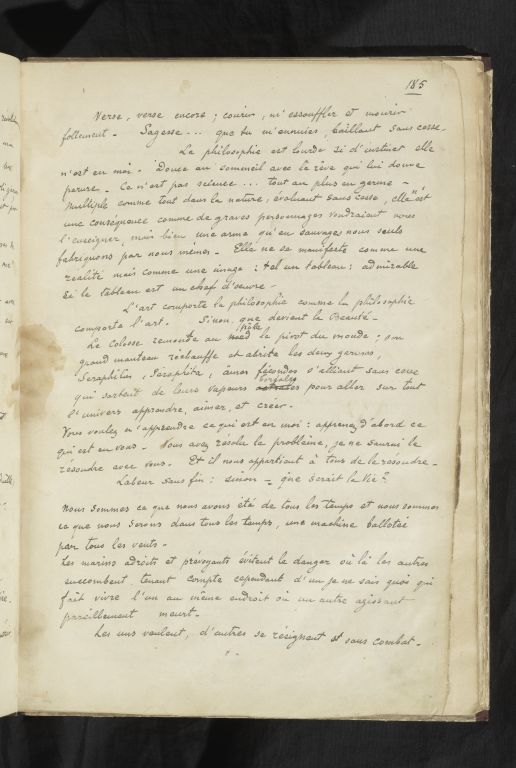 185
Verse, verse encore ; courir, m'essouffler et mourir
follement - Sagesse ... que tu m'ennuies, baillant sans cesse.
La philosophie est lourde si d'instinct elle
n'est en moi. Douce au sommeil avec le rêve qui lui donne
parure. Ce n'est pas science ... tout au plus en germe -
Multiple comme tout dans la nature, évoluant sans cesse, elle n'est
une conséquence comme de graves personnages voudraient nous
l'enseigner, mais bien une arme qu'en sauvages nous seuls
fabriquons par nous mêmes. Elle ne se manifeste comme une
réalité mais comme une image : tel un tableau : admirable
si le tableau est un chef d'oeuvre -
L'art comporte la philosophie comme la philosophie
comporte l'art. Sinon que devient la beauté -
pôle
Le Colosse remonte au nord le pivot du monde ; son
grand manteau réchauffe et abrite les deux germes,
Seraphitus, Séraphita, âmes fécondes s'alliant sans cesse
boréales
qui sortent de leurs vapeurs pour aller sur tout
l'univers apprendre, aimer, et créer.
Vous voulez m'apprendre ce qui est en moi : apprenez d'abord ce
qui est en vous - Vous avez résolu le problème, je ne saurai le
résoudre avec vous. Et il nous appartient à tous de le résoudre -
Labeur sans fin : sinon = que serait la Vie ?
Nous sommes ce que nous avons été de tous les temps et nous sommes
ce que nous serons dans tous les temps, une machine ballotée
par tous les vents -
Les marins adroits et prévoyants évitent le danger où là les autres
succombent, tenant compte cependant d'un je ne sais quoi qui
fait vivre l'un au même endroit où un autre agissant
pareillement meurt -
Les uns veulent, d'autres se résignent et sans combat -